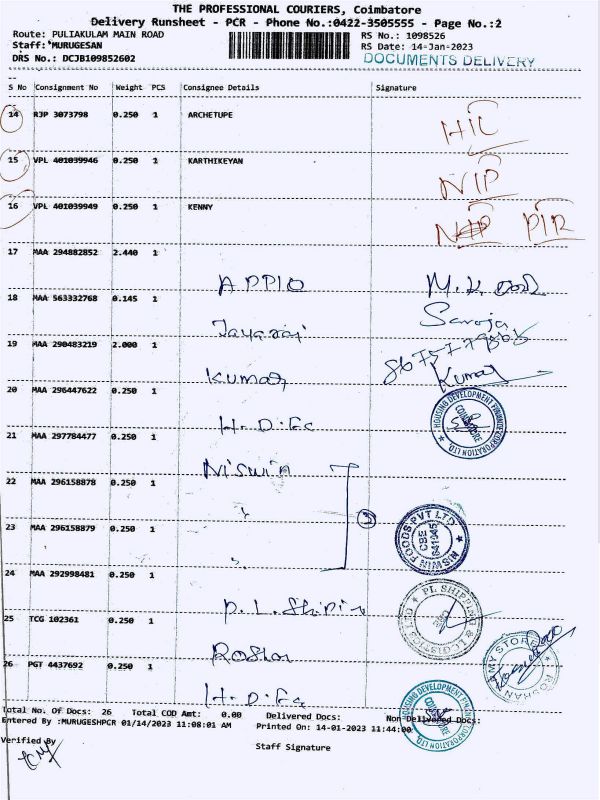 THE PROFESSIONAL COURIERS, Coimbatore
Delivery Runsheet - PCR - Phone No.:0422-3505555 - Page No.:2
Route: PULIAKULAM MAIN ROAD RS No.: 1098526
Staff: MURUGESAN RS Date: 14-Jan-2023
DRS No.: DCJB109852602 DOCUMENTS DELIVERY
S No Consignment No Weight PCS Consignee Details Signature
14 RJP 3073798 0.250 1 ARCHETUPE
HIC
15 VPL 401039946 0.250 1 KARTHIKEYAN
NIP
16 VPL 401039949 0.250 1 KENNY
PIR
17 MAA 294882852 2.440 1
APPIO M.K.
18 MAA 563332768 0.145 1
Jayaraj Saroja
19 MAA 290483219 2.000 1
Kumar Kumar
20 MAA 296447622 0.250 1
H.D.Fc HOUSING DEVELOPMENT FINANCE CORPORATION LTD. COIMBATORE
21 MAA 297784477 0.250 1
Niswin
22 MAA 296158878 0.250 1
3
23 MAA 296158879 0.250 1
NISWIN FOODS PVT LTD CBE 641045
24 MAA 292998481 0.250 1
P.L. Shipin PL SHIPPING & LOGISTICS LTD
25 TCG 102361 0.250 1
Roshan ROSHAN MY STORE
26 PGT 4437692 0.250 1
H.D.Fc HOUSING DEVELOPMENT FINANCE CORPORATION LTD.
Total No. Of Docs: 26 Total COD Amt: 0.00 Delivered Docs: Non Delivered Docs:
Entered By :MURUGESHPCR 01/14/2023 11:08:01 AM Printed On: 14-01-2023 11:44:00
Verified By Staff Signature